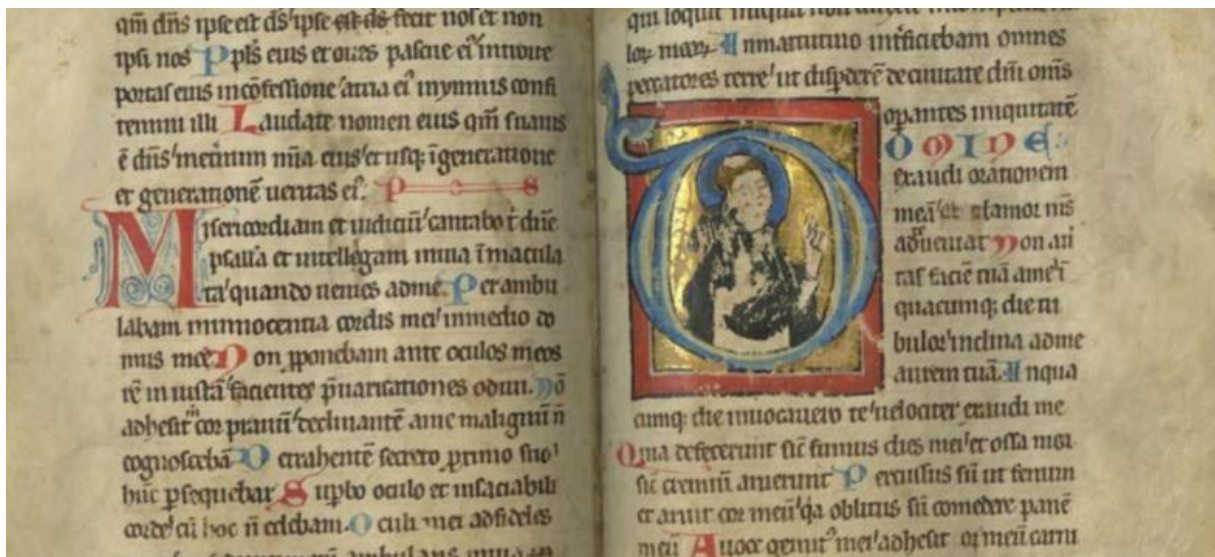 qm̄ dn̄s ipse est ds̄ ipse est ds̄ fecit nos et non
ipsi nos Ppl̄s eius et oues pascue ei' introite
portas eius in cōfessione atria ei' in ymnis confi
temini illi Laudate nomen eius qm̄ suauis
ē dn̄s in eternum mīa eius et usq; ī generatione
et generationē ueritas ei'. P S
Misericordiam et iudiciū cantabo t̄ dn̄e
psallā et intellegam in uia īmacula
ta quando uenies ad me Perambu
labam in innocentia cordis mei in medio do
mus mee Non ꝓponebam ante oculos meos
rē in iustā facientes p̄uaricationes odiui Nō
adhesit m̄ cor prauū declinantē a me malignū n̄
cognoscebā Detrahentē secreto proximo suo
hūc ꝑsequebar Supbo oculo et insaciabili
corde cū hoc n̄ edebam Oculi mei ad fideles
ambulans in uia
qui loquit iniqua non
lor̄ meor̄ In matutino int̄ficiebam omnes
peccatores terre ut dispderē de ciuitate dn̄i om̄s
opantes iniquitatē
DOMINE
exaudi orationem
meā et clamor m̄s
ad te ueniat Non au̇
tas faciē tuā a me ī
quacumq; die tri
bulor inclina ad me
aurem tuā In qua
cumq; die inuocauero te uelociter exaudi me
Quia defecerunt sic̄ fumus dies mei et ossa mea
sic̄ cremiū aruerunt Percussus sū ut fenum
et aruit cor meū q̇a oblitus sū comedere panē
meū A uoce gemit' mei adhesit os meū carni